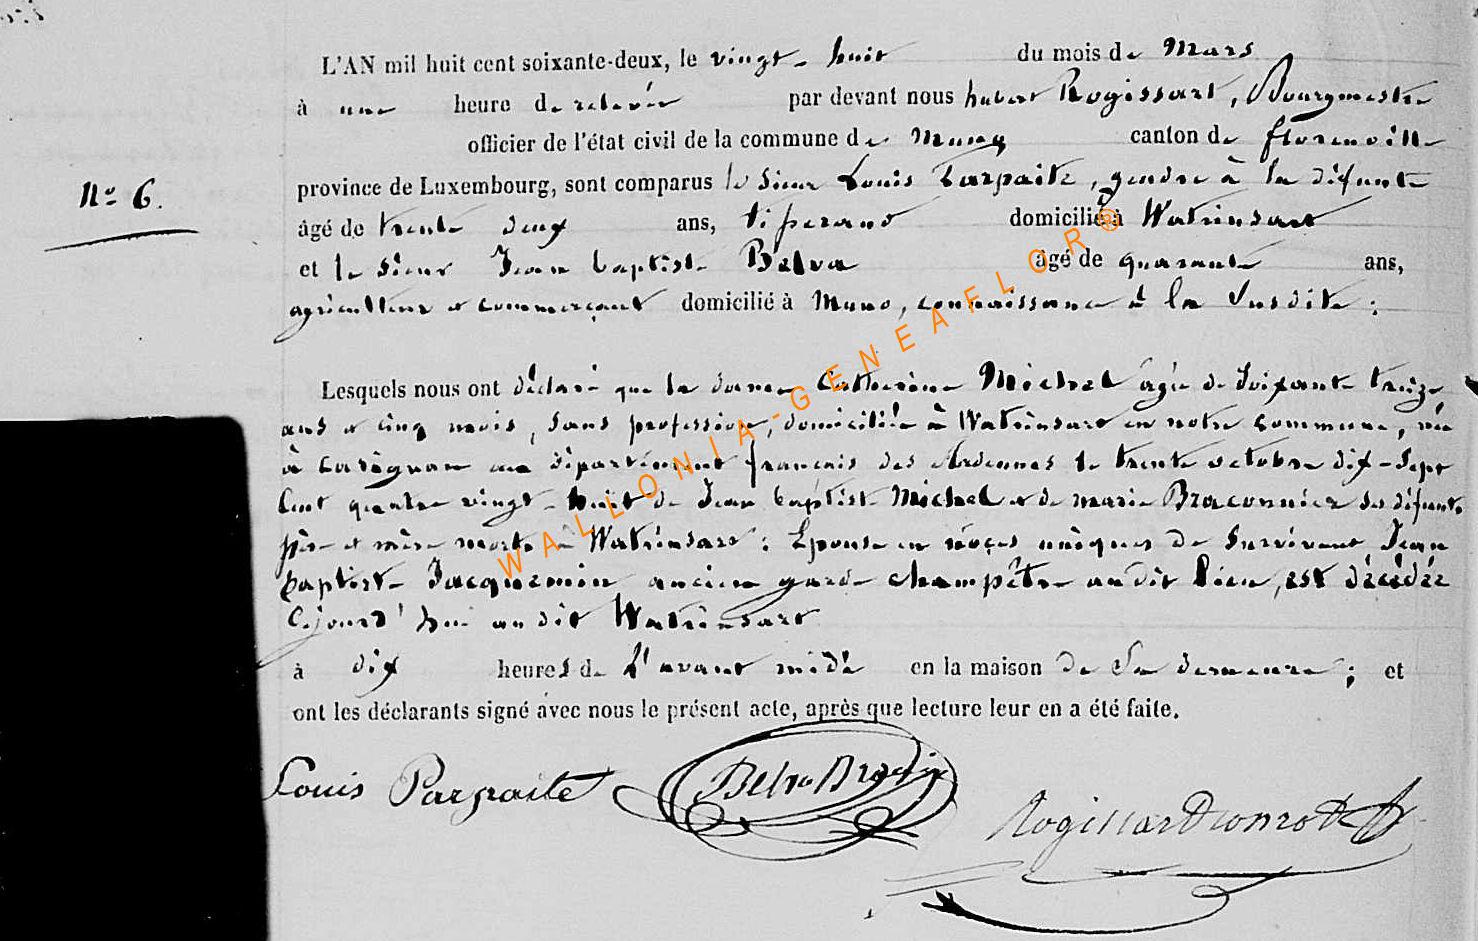 L'AN mil huit cent soixante-deux, le vingt-huit du mois de Mars
à une heure de relevée par devant nous hubert Rogissart, Bourgmestre
officier de l'état civil de la commune de Muno canton de florenville
N° 6.
province de Luxembourg, sont comparus le Sieur Louis Parfaite, gendre à la défunte
âgé de trente deux ans, tisserand domicilié à Watrinsart
et le Sieur Jean baptiste Belva âgé de quarante ans,
agriculteur et commerçant domicilié à Muno, connaissance à la Susdite ;
Lesquels nous ont déclaré que la dame Catherine Michel âgée de Soixante treize
ans et cinq mois, Sans profession, domiciliée à Watrinsart en notre commune, née
à Carignan au département français des Ardennes le trente octobre dix-Sept
Cent quatre vingt-huit de Jean baptiste Michel et de marie Braconnier Ses défunts
père et mère morts à Watrinsart : Epouse en nôces uniques de Survivant Jean
baptiste Jacquemin ancien garde champêtre au dit lieu, est décédée
Cejourd'hui au dit Watrinsart
à dix heures de l'avant midi en la maison de Sa demeure ; et
ont les déclarants signé avec nous le présent acte, après que lecture leur en a été faite.
Louis Parfaite Belva
WALLONIA-GENEAFLOR®